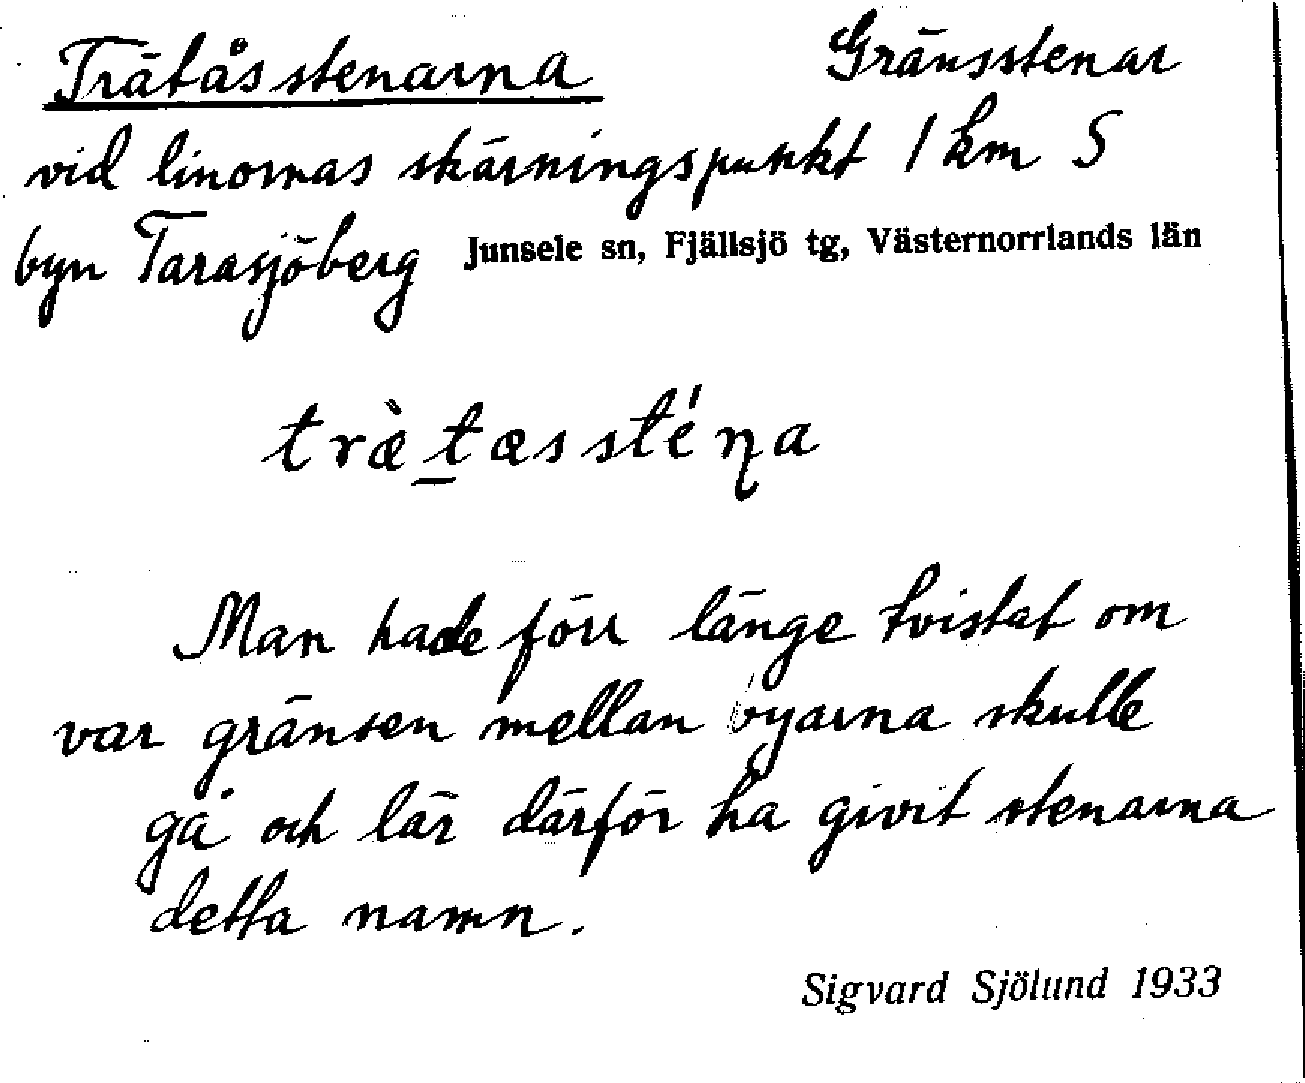 Trätåsstenarna Gränsstenar
vid linornas skärningspunkt 1 km S
byn Tarasjöberg Junsele sn, Fjällsjö tg, Västernorrlands län
træ̀t̲æssténa
Man hade förr länge tvistat om
var gränsen mellan byarna skulle
gå och lär därför ha givit stenarna
detta namn.
Sigvard Sjölund 1933